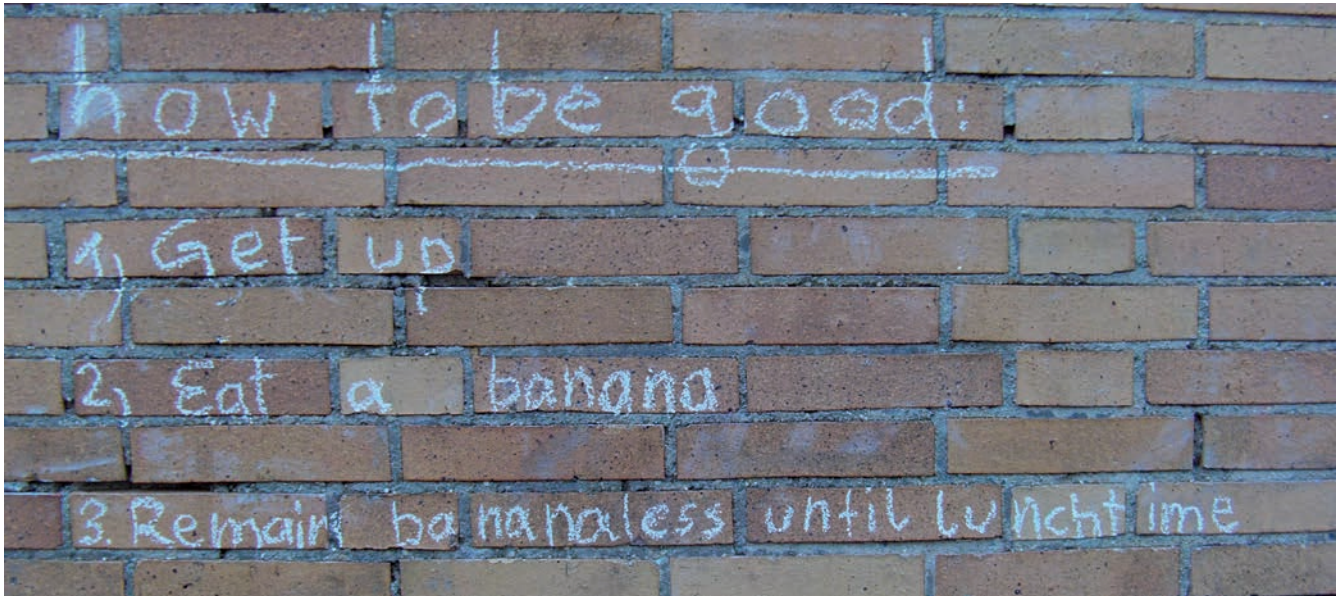 how to be good:
1, Get up
2, Eat a banana
3. Remain bananaless until lunchtime